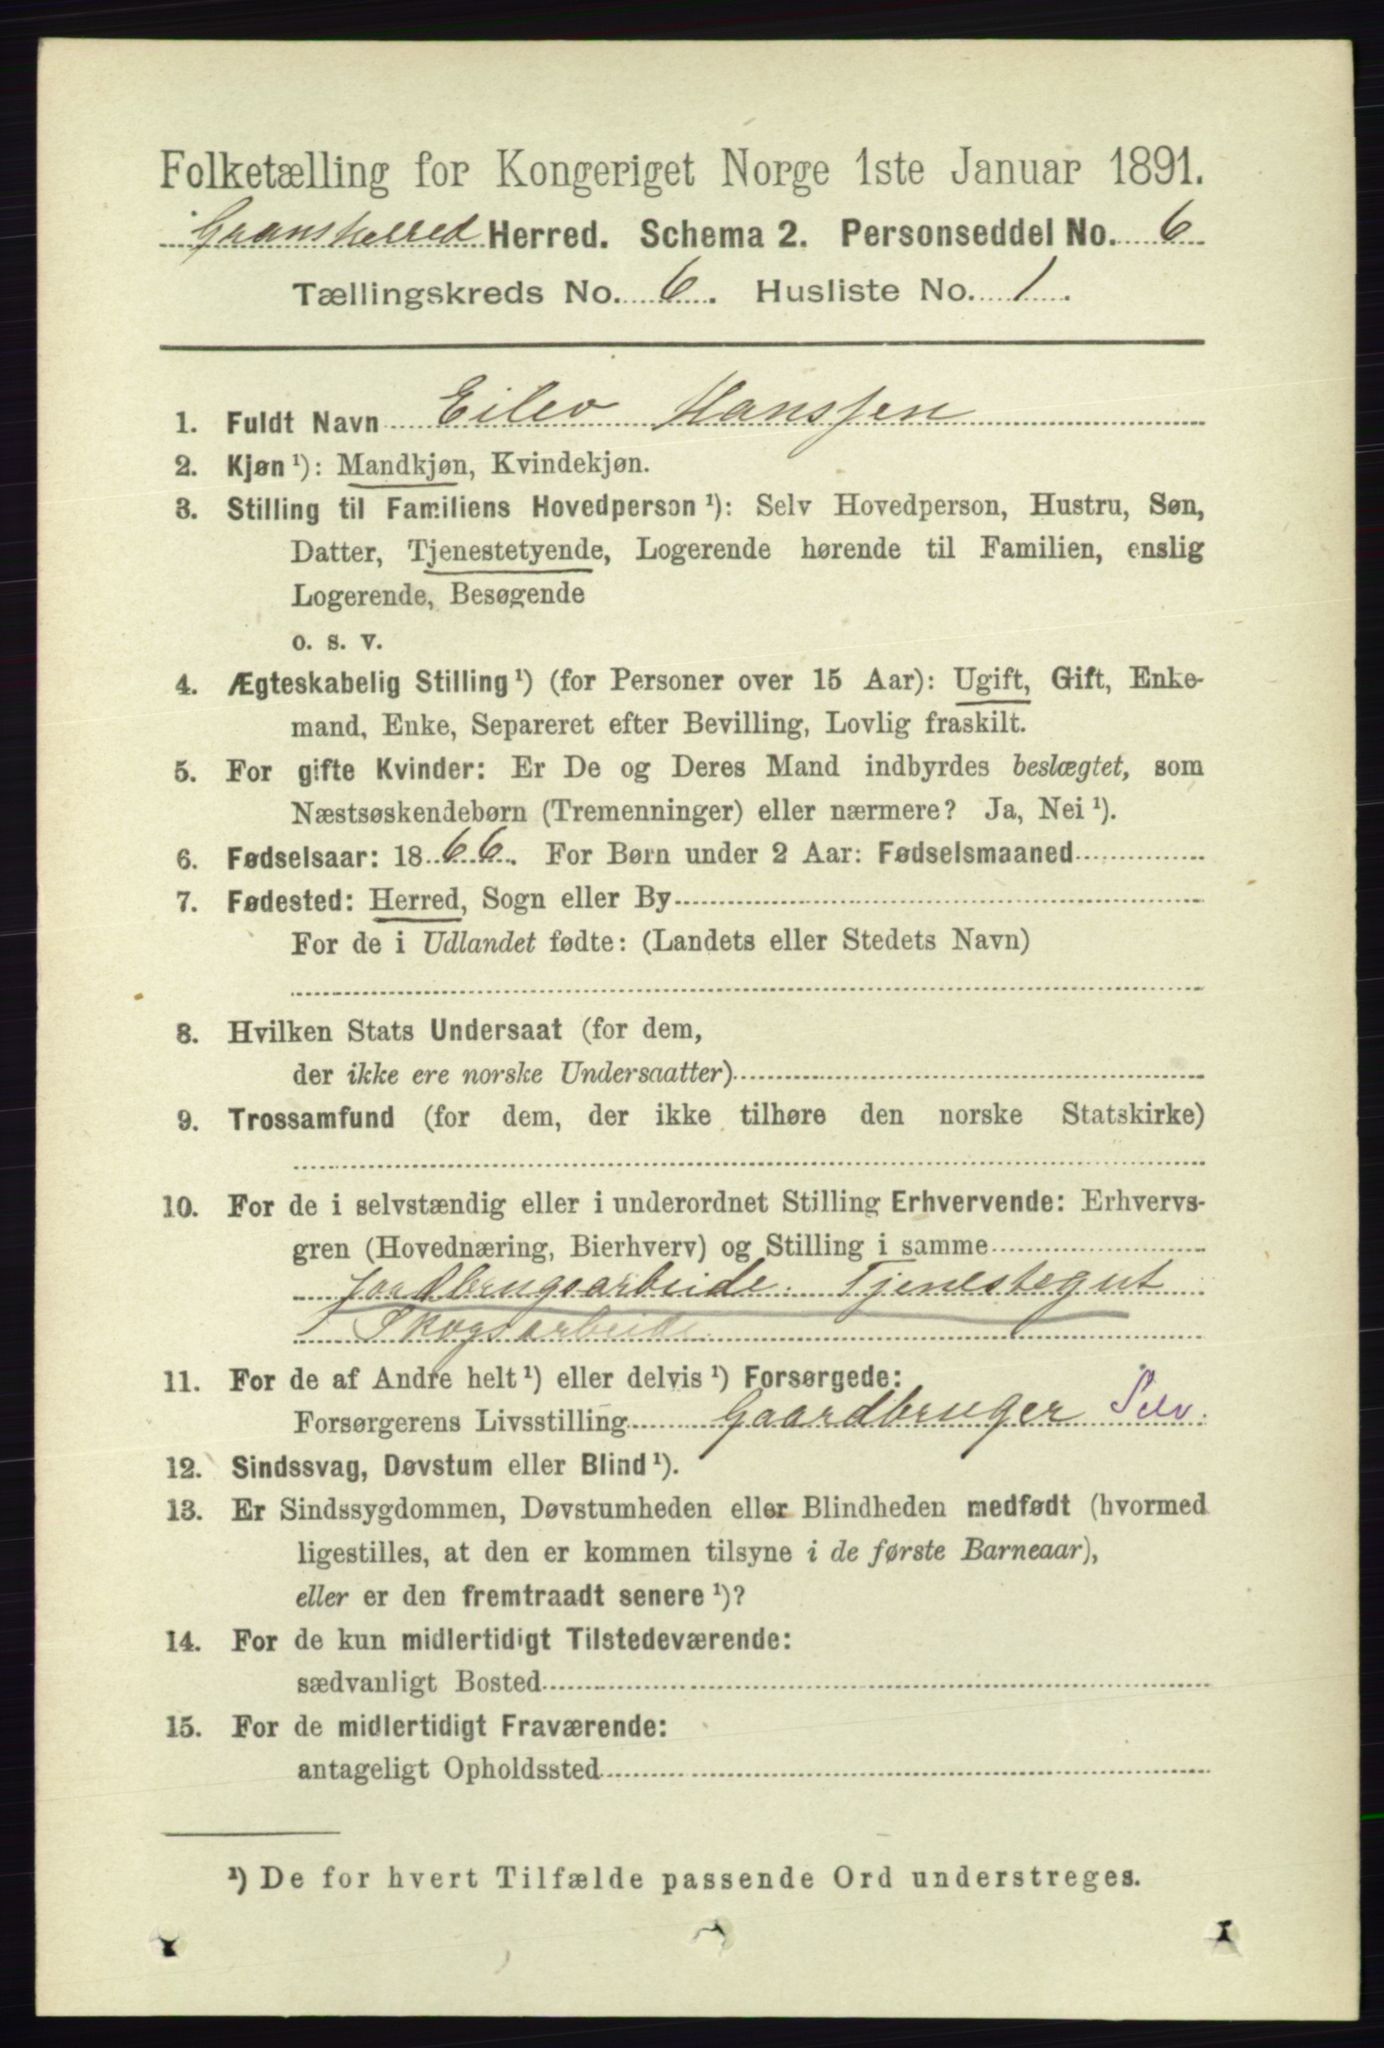 Folketælling for Kongeriget Norge 1ste Januar 1891.
Gransherred Herred. Schema 2. Personseddel No. 6
Tællingskreds No. 6. Husliste No. 1.
1. Fuldt Navn Eilev Hanssen
2. Kjøn ¹): Mandkjøn, Kvindekjøn.
3. Stilling til Familiens Hovedperson ¹): Selv Hovedperson, Hustru, Søn,
Datter, Tjenestetyende, Logerende hørende til Familien, enslig
Logerende, Besøgende
o. s. v.
4. Ægteskabelig Stilling ¹) (for Personer over 15 Aar): Ugift, Gift, Enke-
mand, Enke, Separeret efter Bevilling, Lovlig fraskilt.
5. For gifte Kvinder: Er De og Deres Mand indbyrdes beslægtet, som
Næstsøskendebørn (Tremenninger) eller nærmere? Ja, Nei ¹).
6. Fødselsaar: 1866. For Børn under 2 Aar: Fødselsmaaned
7. Fødested: Herred, Sogn eller By
For de i Udlandet fødte: (Landets eller Stedets Navn)
8. Hvilken Stats Undersaat (for dem,
der ikke ere norske Undersaatter)
9. Trossamfund (for dem, der ikke tilhøre den norske Statskirke)
10. For de i selvstændig eller i underordnet Stilling Erhvervende: Erhvervs-
gren (Hovednæring, Bierhverv) og Stilling i samme
Jordbrugsarbeide. Tjenestegut
Skogsarbeide
11. For de af Andre helt ¹) eller delvis ¹) Forsørgede:
Forsørgerens Livsstilling Gaardbruger Selv.
12. Sindssvag, Døvstum eller Blind ¹).
13. Er Sindssygdommen, Døvstumheden eller Blindheden medfødt (hvormed
ligestilles, at den er kommen tilsyne i de første Barneaar),
eller er den fremtraadt senere ¹)?
14. For de kun midlertidigt Tilstedeværende:
sædvanligt Bosted
15. For de midlertidigt Fraværende:
antageligt Opholdssted
¹) De for hvert Tilfælde passende Ord understreges.